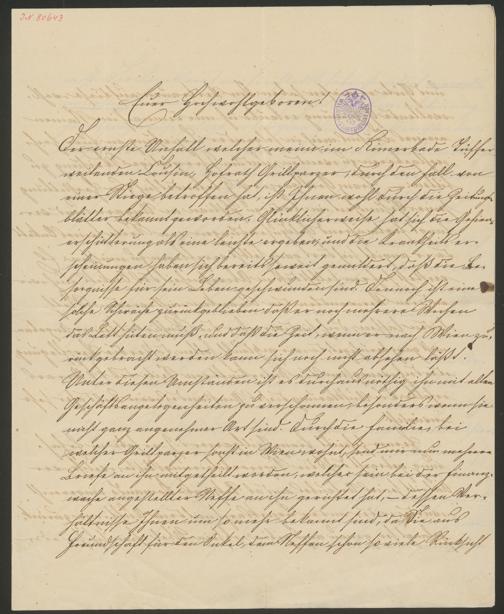 I.N. 80643
Euer Hochwohlgeboren!
Der ernste Unfall welcher meinen im Römerbade Tüffer
weilenden Cousin, Hofrath Grillparzer, durch den Fall von
einer Stiege betroffen hat, ist Ihnen wohl durch die Zeitungs-
blätter bekannt geworden. Glücklicherweise hat sich die Gehirn-
erschütterung als eine leichte ergeben, und die Krankheits er-
scheinungen haben sich bereits soweit gemildert, daß die Be-
sorgnisse für sein Leben geschwunden sind. Dennoch ist eine
solche Schwäche zurückgeblieben daß er noch mehrere Wochen
das Bett hüten muß, und daß die Zeit, wenn er nach Wien zu-
rückgebracht werden kann sich noch nicht absehen läßt.
Unter diesen Umständen ist es durchaus nöthig ihn mit allen
Geschäftsangelegenheiten zu verschonen, besonders wenn sie
nicht ganz angenehmer Art sind. Durch die Familie, bei
welcher Grillparzer sonst in Wien wohnt, sind mir nun mehrere
Briefe an ihn mitgetheilt worden, welcher sein bei der Finanz-
wache angestellter Neffe an ihn gerichtet hat, dessen Ver-
hältnisse Ihnen um so mehr bekannt sind, da Sie aus
Freundschaft für den Onkel, dem Neffen schon so viele Rücksicht